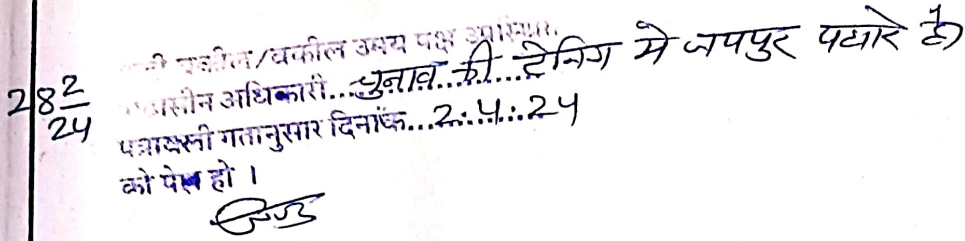 28 2/24
वकील/वकील उभय पक्ष उपस्थित।
पीठासीन अधिकारी...चुनाव..की...ट्रेनिग मे जयपुर पधारे है।
पत्रावली गतानुसार दिनांक...2.:.4.:.24
को पेश हो ।